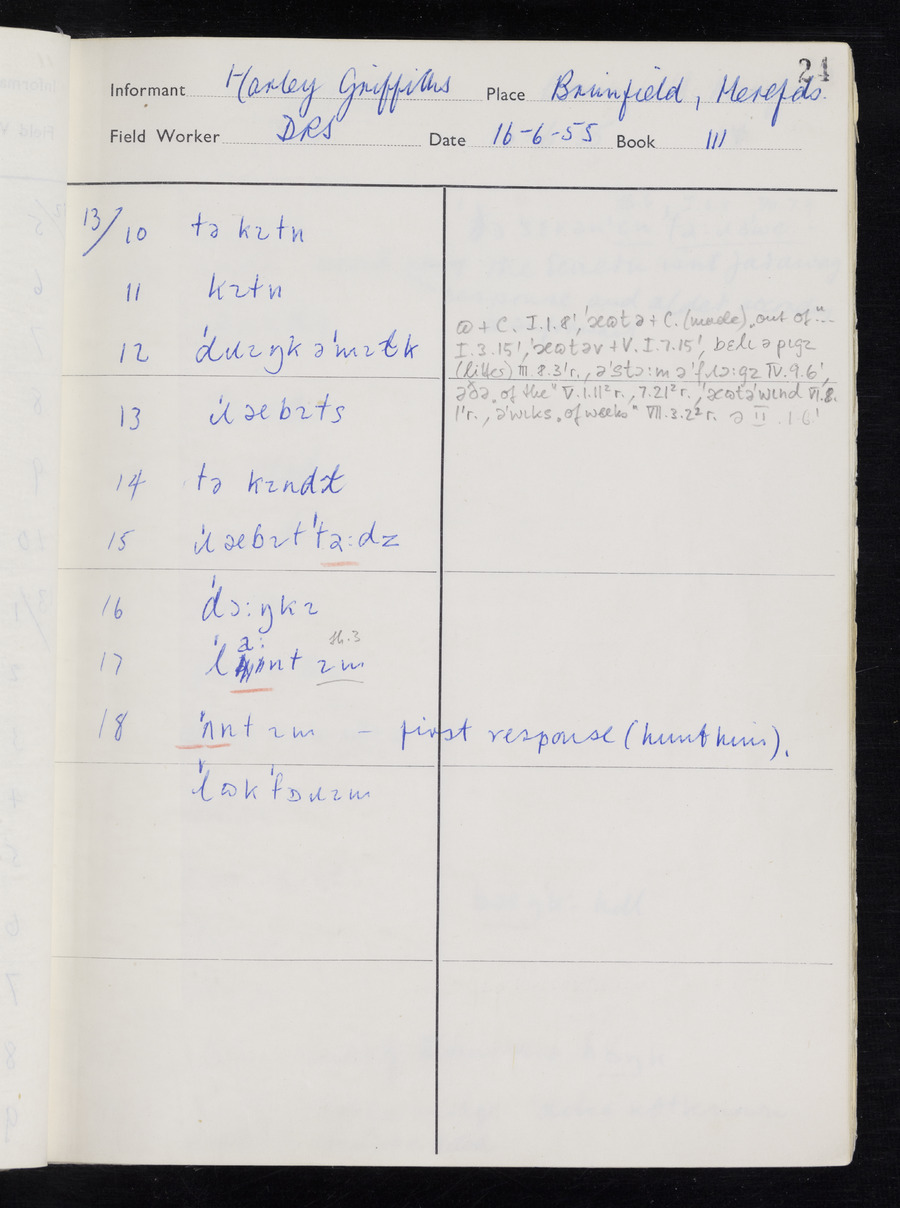 24
Informant Harley Griffiths Place Brimfield, Herefds.
Field Worker DRS Date 16-6-55 Book III
13/10 tə kɪtn
11 kɪtn
12 ˈdɹɪŋk əˈmɪɫk
13 ˈɹæbɪts
14 tə kɪndɫ
15 ˈɹæbɪtˈtə:dz
16 ˈdɔ:ŋkɪ
17 a: sh.3
ɪm
18 ˈʌnt ɪm – first response (hunt him).
ˈlɷk ˈfɒɹɪm
ɷ + C. I.1.8', ˈæɷtə + C. (made) „out of"
I.3.15', ˈæɷtəv + V. I.7.15', bɛlɪ ə pɪgz
III.8.3'r., əˈstɔ:m əˈfɹɔ:gz IV.9.6',
əðə „of the" V.1.11²r., 7.21²r., ˈæɷtəˈwɪnd VI.8.
1'r., əˈwɪks „of weeks" VII.3.2²r. ə II.1.6'